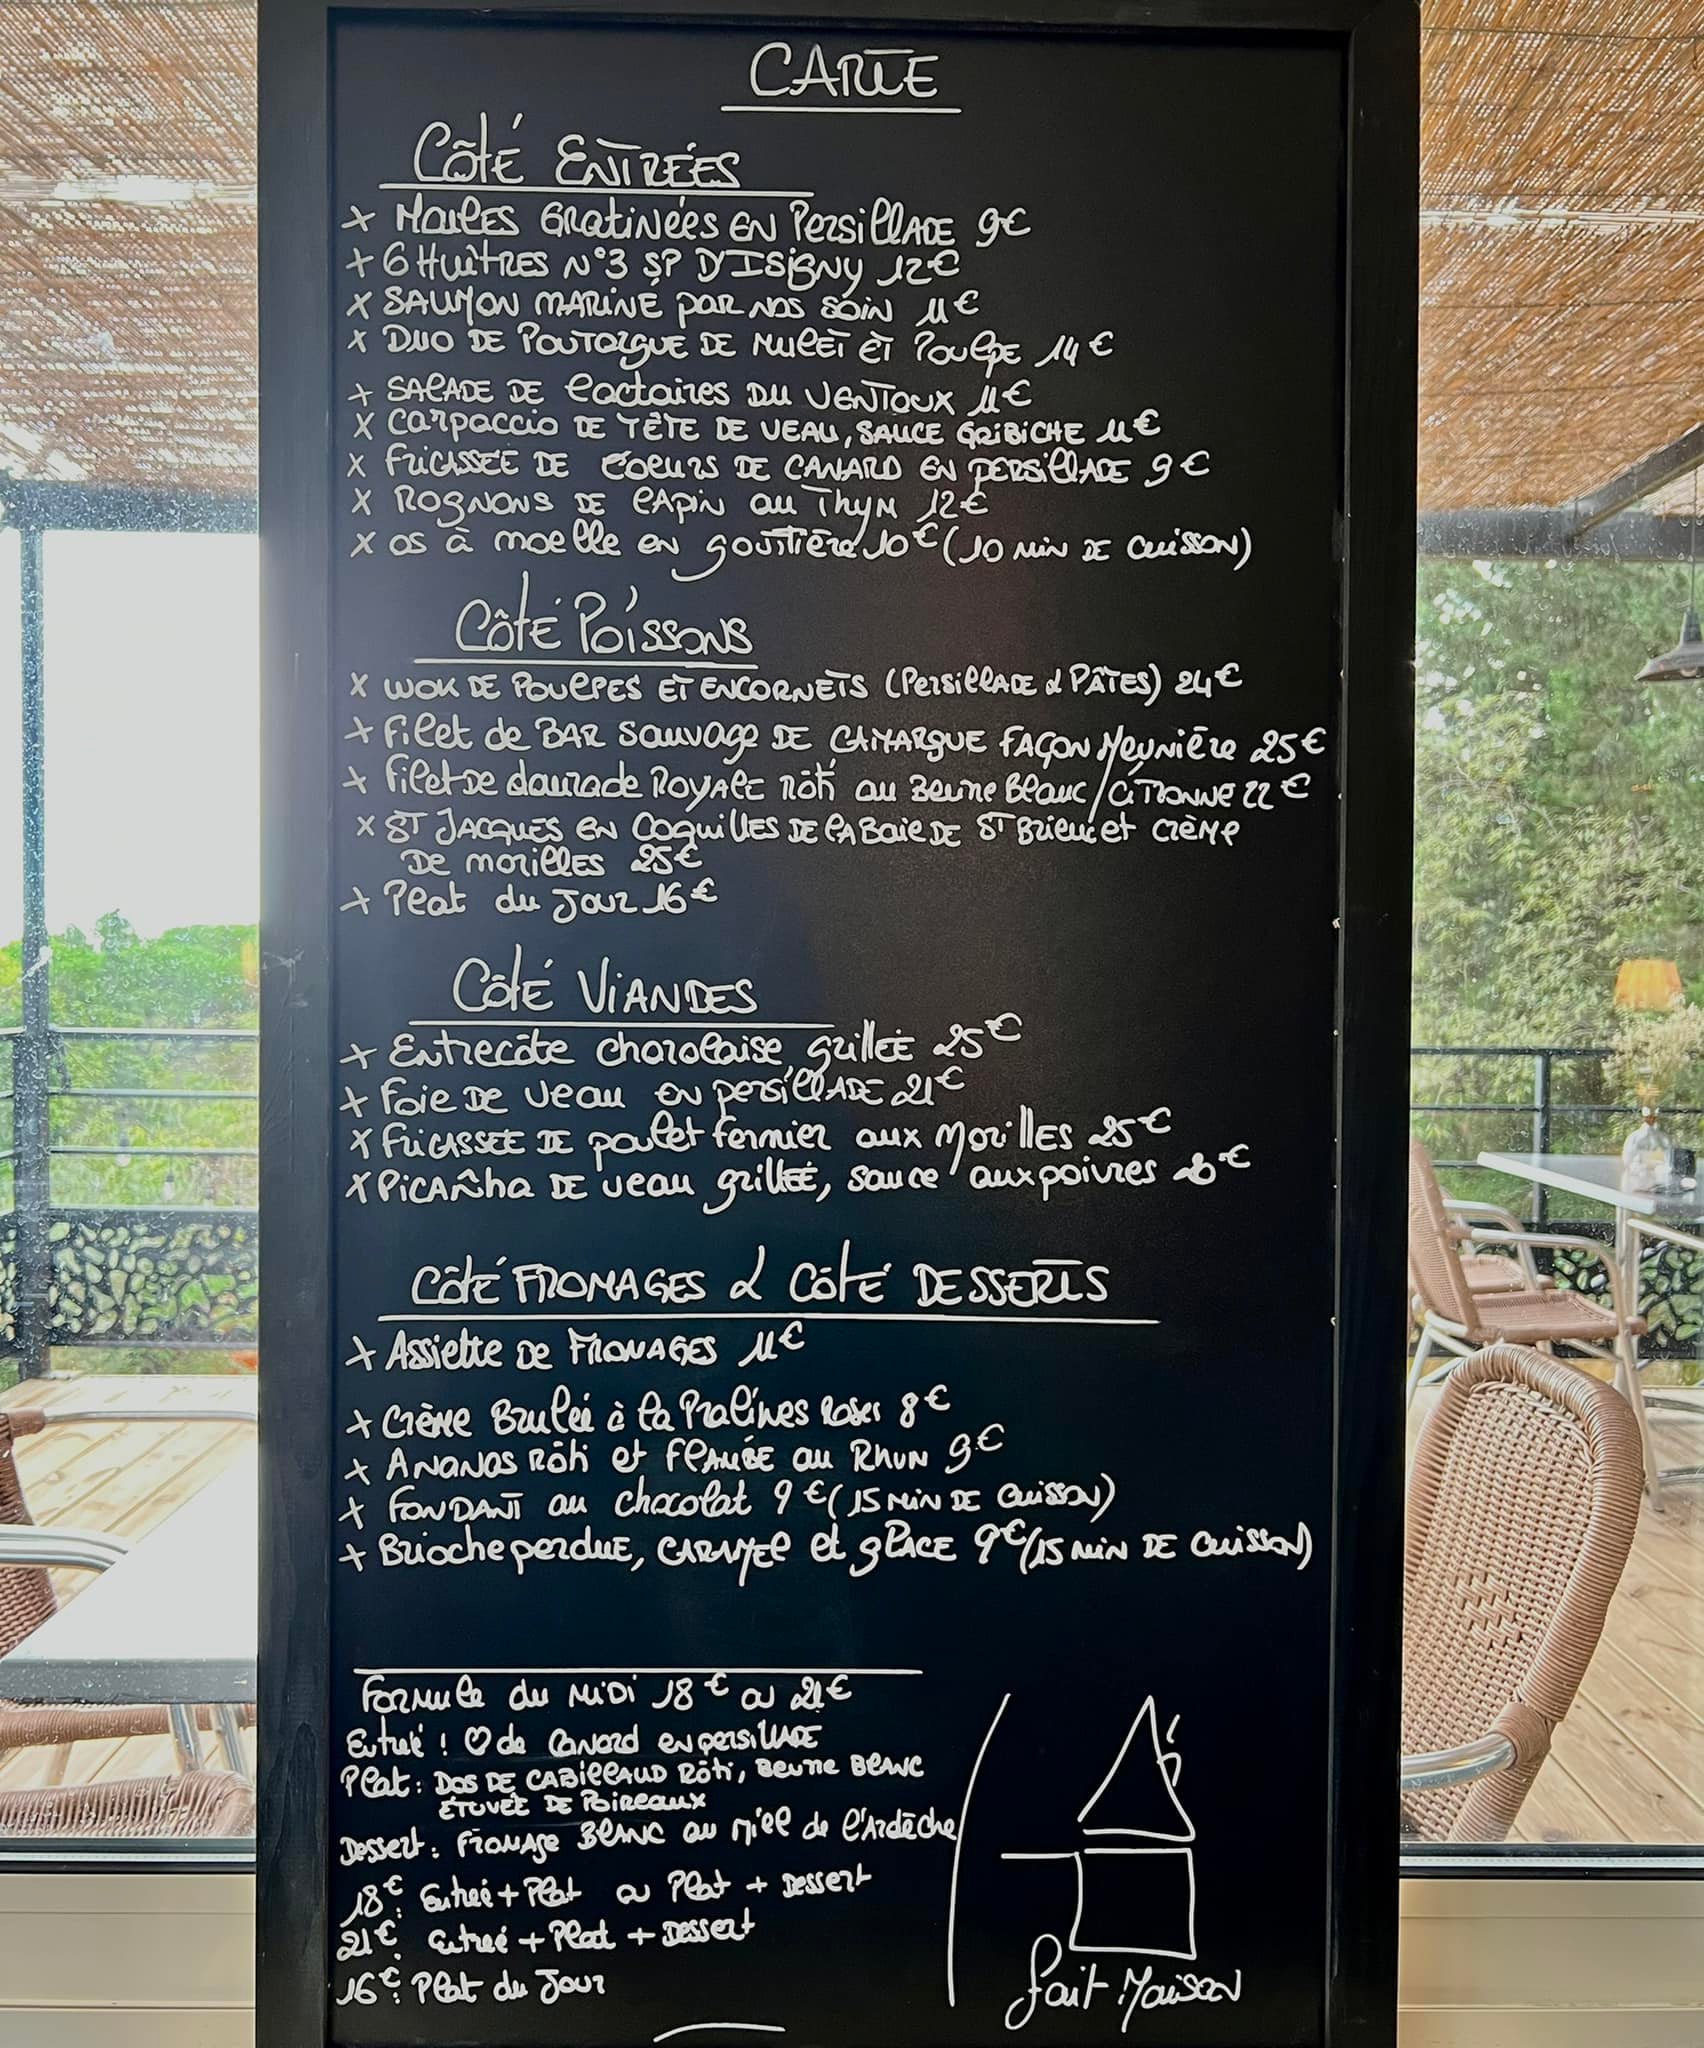 CARTE
Côté Entrées
x Moules Gratinées en Persillade 9€
+ 6 Huîtres N°3 SP D'Isigny 12€
x Saumon mariné par nos soin 11€
x Duo de Poutargue de Mulet et Poulpe 14€
+ Salade de lactaires du Ventoux 11€
x Carpaccio de tête de veau, sauce gribiche 11€
x Fricassée de coeurs de canard en persillade 9€
x Rognons de lapin au Thym 12€
x os à moelle en gouttière 10€ (10 min de cuisson)
Côté Poissons
x Wok de Poulpes et encornets (Persillade & Pâtes) 24€
+ Filet de Bar Sauvage de Camargue façon Meunière 25€
+ Filet de daurade Royale rôti au Beurre Blanc/Citronné 22€
x St Jacques en Coquilles de la Baie de St Brieuc et crème
de morilles 25€
+ Plat du Jour 16€
Côté Viandes
+ Entrecôte charolaise grillée 25€
+ Foie de veau en persillade 21€
x Fricassée de poulet fermier aux Morilles 25€
x Picanha de veau grillée, sauce aux poivres €
Côté Fromages & Côté Desserts
+ Assiette de Fromages 11€
+ Crème Brulée à la Pralines Roses 8€
+ Ananas Rôti et flambé au Rhum 9€
+ Fondant au chocolat 9€ (15 min de cuisson)
+ Brioche perdue, caramel et glace 9€ (15 min de cuisson)
Formule du Midi 18€ ou 21€
Entrée : ♡ de Canard en persillade
Plat : Dos de cabillaud rôti, Beurre Blanc
étuvée de Poireaux
Dessert : Fromage Blanc au miel de l'Ardèche
18€: Entrée + Plat ou Plat + Dessert
21€: Entrée + Plat + Dessert
16€: Plat du Jour
fait Maison